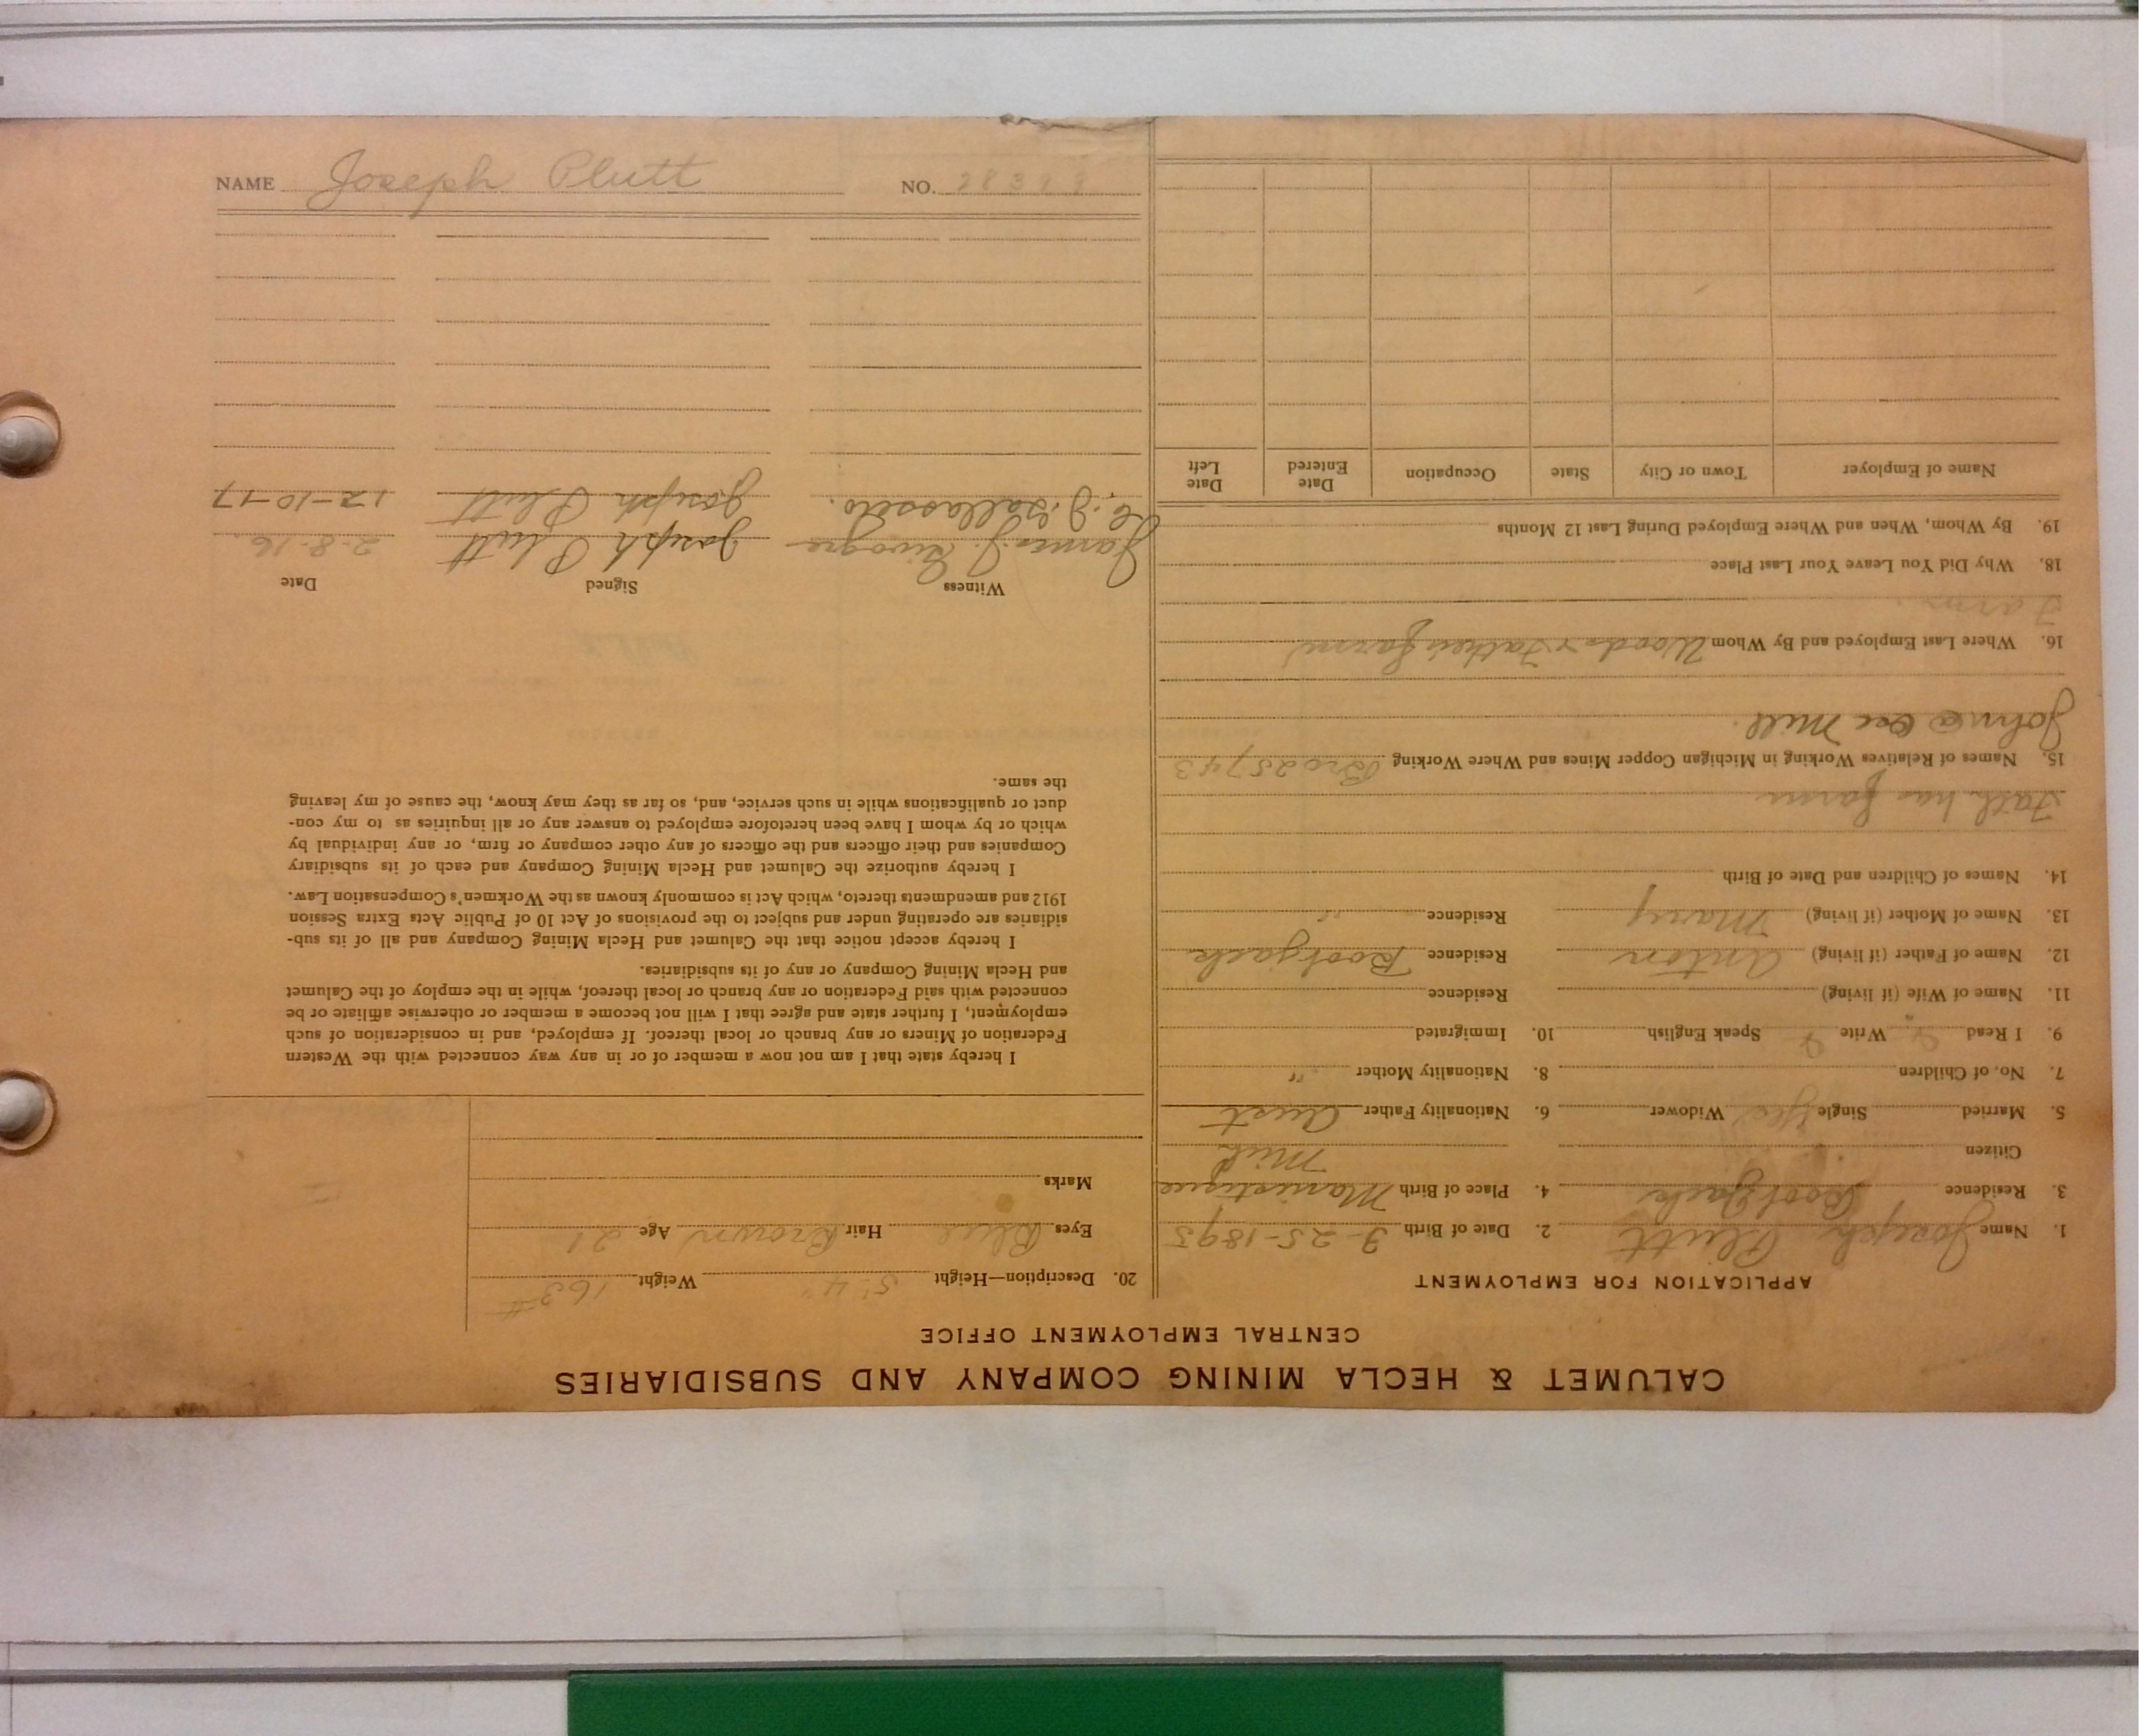 CALUMET & HECLA MINING COMPANY AND SUBSIDIARIES
CENTRAL EMPLOYMENT OFFICE
APPLICATION FOR EMPLOYMENT
1. Name Joseph Plutt 2. Date of Birth 3-25-1895
3. Residence Bootjack 4. Place of Birth Manistique
Citizen Mich
5. Married Single Yes Widower 6. Nationality Father Aust
7. No. of Children 8. Nationality Mother "
9. I Read Write Speak English 10. Immigrated
11. Name of Wife (if living) Residence
12. Name of Father (if living) Anton Residence Bootjack
13. Name of Mother (if living) Mary Residence "
14. Names of Children and Date of Birth
Fath. has farm
15. Names of Relatives Working in Michigan Copper Mines and Where Working Bro 25743
John @ Mill.
16. Where Last Employed and By Whom Woods & Father's farm
Farm.
18. Why Did You Leave Your Last Place
19. By Whom, When and Where Employed During Last 12 Months
Name of Employer Town or City State Occupation Date Entered Date Left
20. Description—Height 5' 4" Weight 163#
Eyes Blue Hair Brown Age 21
Marks
I hereby state that I am not now a member of or in any way connected with the Western
Federation of Miners or any branch or local thereof. If employed, and in consideration of such
employment, I further state and agree that I will not become a member or otherwise affiliate or be
connected with said Federation or any branch or local thereof, while in the employ of the Calumet
and Hecla Mining Company or any of its subsidiaries.
I hereby accept notice that the Calumet and Hecla Mining Company and all of its sub-
sidiaries are operating under and subject to the provisions of Act 10 of Public Acts Extra Session
1912 and amendments thereto, which Act is commonly known as the Workmen's Compensation Law.
I hereby authorize the Calumet and Hecla Mining Company and each of its subsidiary
Companies and their officers and the officers of any other company or firm, or any individual by
which or by whom I have been heretofore employed to answer any or all inquiries as to my con-
duct or qualifications while in such service, and, so far as they may know, the cause of my leaving
the same.
Witness Signed Date
James J. Joseph Plutt 2-8-16.
Joseph Plutt 12-10-17
NAME Joseph Plutt NO. 28399